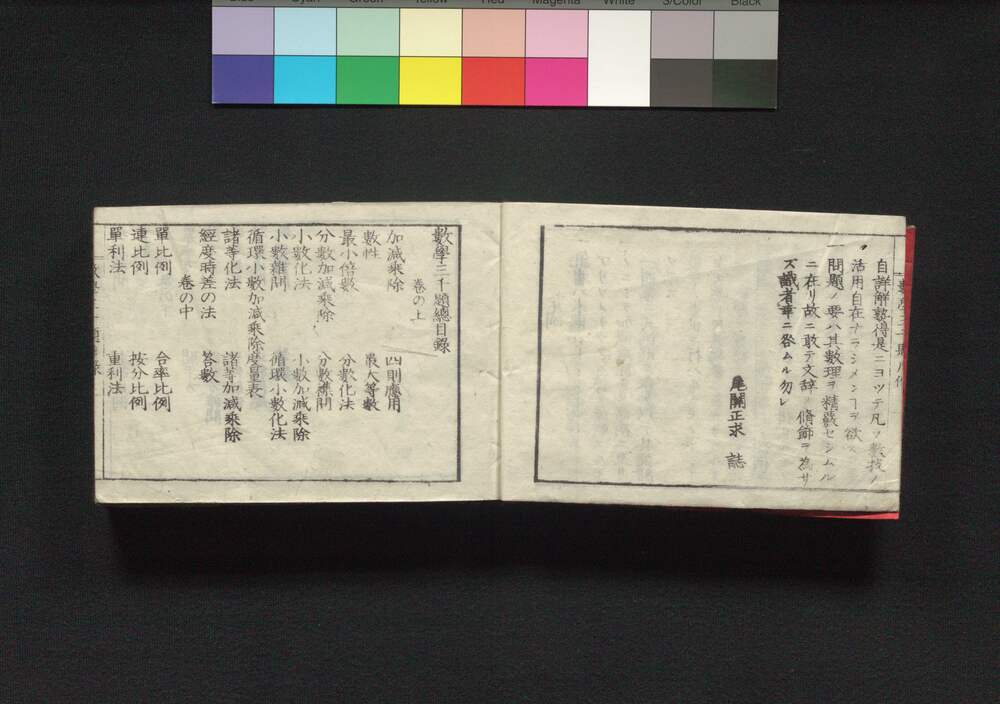 Blue Cyan Green Yellow Red Magenta White 3/Color Black
自詳解豁得是ニヨツテ凡ノ數技ノ
活用自在ナラシメンヿヲ欲ス
一問題ノ要ハ其數理ヲ精覈セシムル
ニ在リ故ニ敢テ文辞ノ脩飾ヲ為サ
ズ識者幸ニ咎ムル勿レ
尾關正求 誌
數學三千題總目録
卷の上
加減乘除 四則應用
數性 最大等數
最小倍數 分數化法
分數加減乘除 分數襍問
小數化法 小數加減乘除
小數雜問 循環小數化法
循環小數加減乘除度量表
諸等化法 諸等加減乘除
經度時差の法 答數
卷の中
單比例 合率比例
連比例 按分比例
單利法 重利法